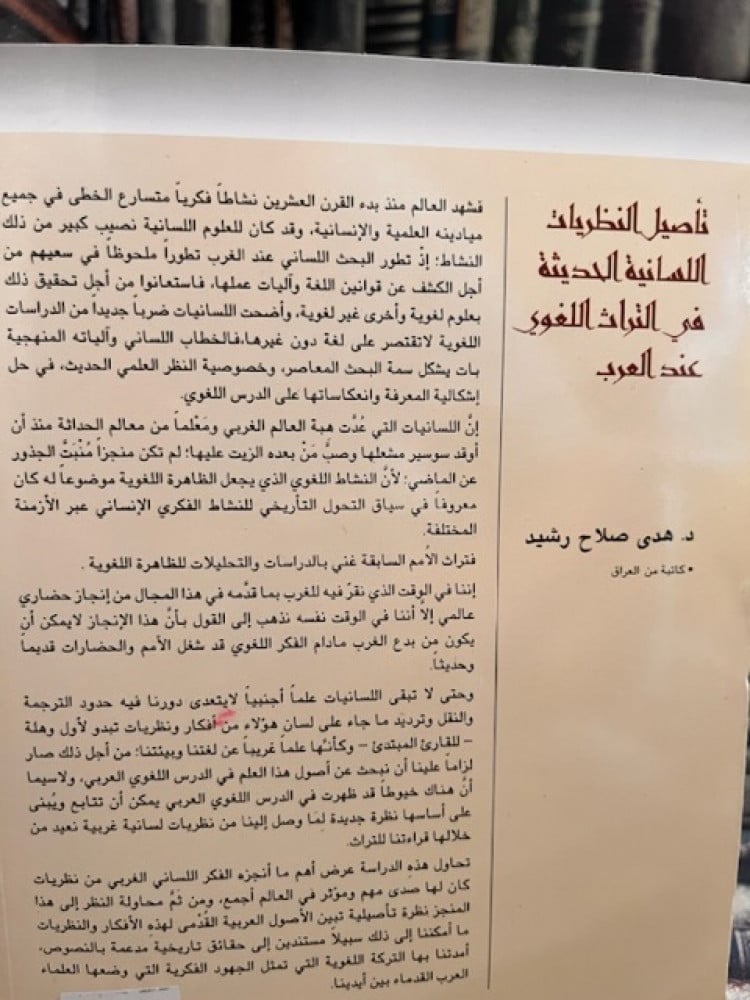 تأصيل النظريات
اللسانية الحديثة
في التراث اللغوي
عند العرب
د. هدى صلاح رشيد
• كاتبة من العراق
فشهد العالم منذ بدء القرن العشرين نشاطاً فكرياً متسارع الخطى في جميع
ميادينه العلمية والإنسانية، وقد كان للعلوم اللسانية نصيب كبير من ذلك
النشاط؛ إذْ تطور البحث اللساني عند الغرب تطوراً ملحوظاً في سعيهم من
أجل الكشف عن قوانين اللغة وآليات عملها، فاستعانوا من أجل تحقيق ذلك
بعلوم لغوية وأخرى غير لغوية، وأضحت اللسانيات ضرباً جديداً من الدراسات
اللغوية لاتقتصر على لغة دون غيرها،فالخطاب اللساني وآلياته المنهجية
بات يشكل سمة البحث المعاصر، وخصوصية النظر العلمي الحديث، في حل
إشكالية المعرفة وانعكاساتها على الدرس اللغوي.
إنَّ اللسانيات التي عُدَّت هبة العالم الغربي ومَعْلماً من معالم الحداثة منذ أن
أوقد سوسير مشعلها وصبَّ مَنْ بعده الزيت عليها؛ لم تكن منجزاً مُنْبَتَّ الجذور
عن الماضي؛ لأنَّ النشاط اللغوي الذي يجعل الظاهرة اللغوية موضوعاً له كان
معروفاً في سياق التحول التأريخي للنشاط الفكري الإنساني عبر الأزمنة
المختلفة.
فتراث الأمم السابقة غني بالدراسات والتحليلات للظاهرة اللغوية .
إننا في الوقت الذي نقرّ فيه للغرب بما قدَّمه في هذا المجال من إنجاز حضاري
عالمي إلاّ أننا في الوقت نفسه نذهب إلى القول بأنَّ هذا الإنجاز لايمكن أن
يكون من بدع الغرب مادام الفكر اللغوي قد شغل الأمم والحضارات قديماً
وحديثاً.
وحتى لا تبقى اللسانيات علماً أجنبياً لايتعدى دورنا فيه حدود الترجمة
والنقل وترديد ما جاء على لسان هؤلاء من أفكار ونظريات تبدو لأول وهلة
– للقارئ المبتدئ – وكأنَّها علماً غريباً عن لغتنا وبيئتنا؛ من أجل ذلك صار
لزاماً علينا أن نبحث عن أصول هذا العلم في الدرس اللغوي العربي، ولاسيما
أنَّ هناك خيوطاً قد ظهرت في الدرس اللغوي العربي يمكن أن تتابع ويُبنى
على أساسها نظرة جديدة لِمَا وصل إلينا من نظريات لسانية غربية نعيد من
خلالها قراءتنا للتراث.
تحاول هذهِ الدراسة عرض أهم ما أنجزه الفكر اللساني الغربي من نظريات
كان لها صدى مهم ومؤثر في العالم أجمع، ومن ثَمَّ محاولة النظر إلى هذا
المنجز نظرة تأصيلية تبين الأصول العربية القُدْمى لهذهِ الأفكار والنظريات
ما أمكننا إلى ذلك سبيلاً مستندين إلى حقائق تاريخية مدعمة بالنصوص،
أمدتنا بها التركة اللغوية التي تمثل الجهود الفكرية التي وضعها العلماء
العرب القدماء بين أيدينا.